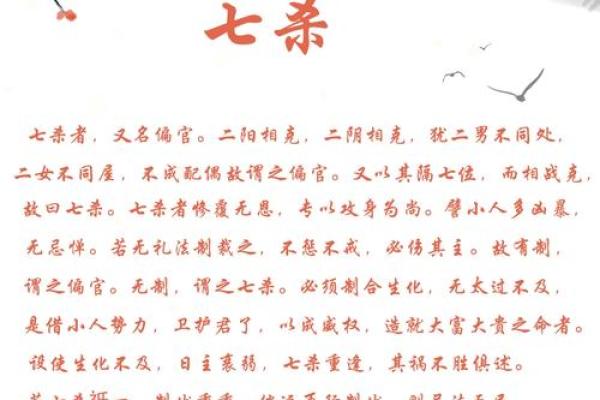 七杀
七杀者，又名偏官。二阳相克，二阴相克，犹二男不同处，
二女不同屋，不成配偶故谓之偏官。又以其隔七位，而相战克，
故曰七杀。七杀者惨覆无恩，专以攻身为尚。譬小人多凶暴，
无忌惮。若无礼法制裁之，不惩不戒，必伤其主。故有制，
谓之偏官。无制，谓之七杀。必须制合生化，无太过不及，
是借小人势力，卫护君子，以成威权，造就大富大贵之命者。
设使生化不及，日主衰弱，七杀重逢，其祸不胜俱述。